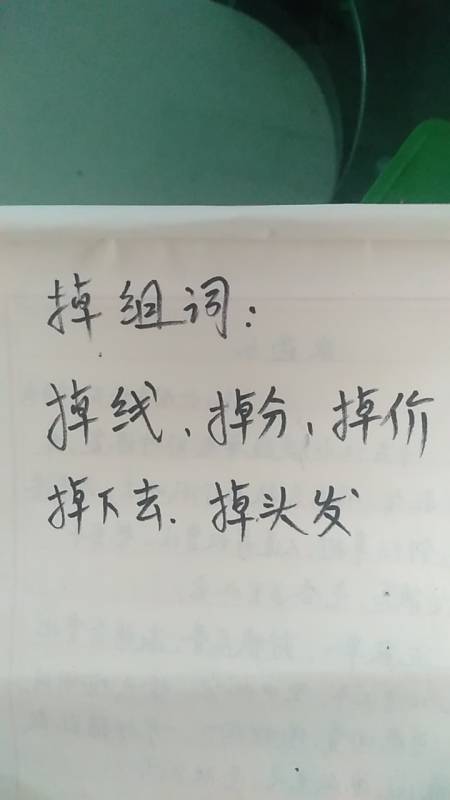 掉组词：
掉线、掉分，掉价
掉下去、掉头发